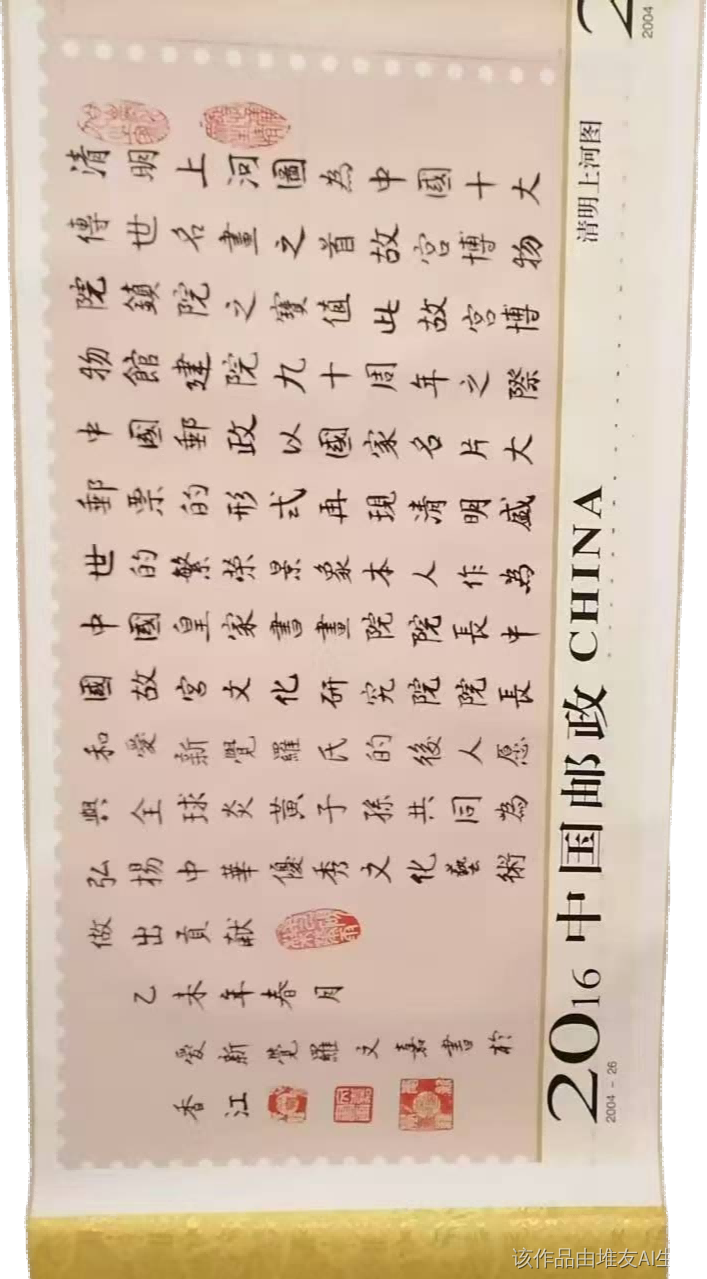 清明上河圖為中國十大
傳世名畫之首故宮博物
院鎮院之寶值此故宮博
物館建院九十周年之際
中國郵政以國家名片大
郵票的形式再現清明盛
世的繁榮景象本人作為
中國皇家書畫院院長中
國故宮文化研究院院長
和愛新覺羅氏的後人愿
與全球炎黃子孫共同為
弘揚中華優秀文化藝術
做出貢献
乙未年春月
愛新覺羅文嘉書於
香江
清明上河图
2016 中国邮政 CHINA
2004 - 26
2
2004
该作品由堆友AI生